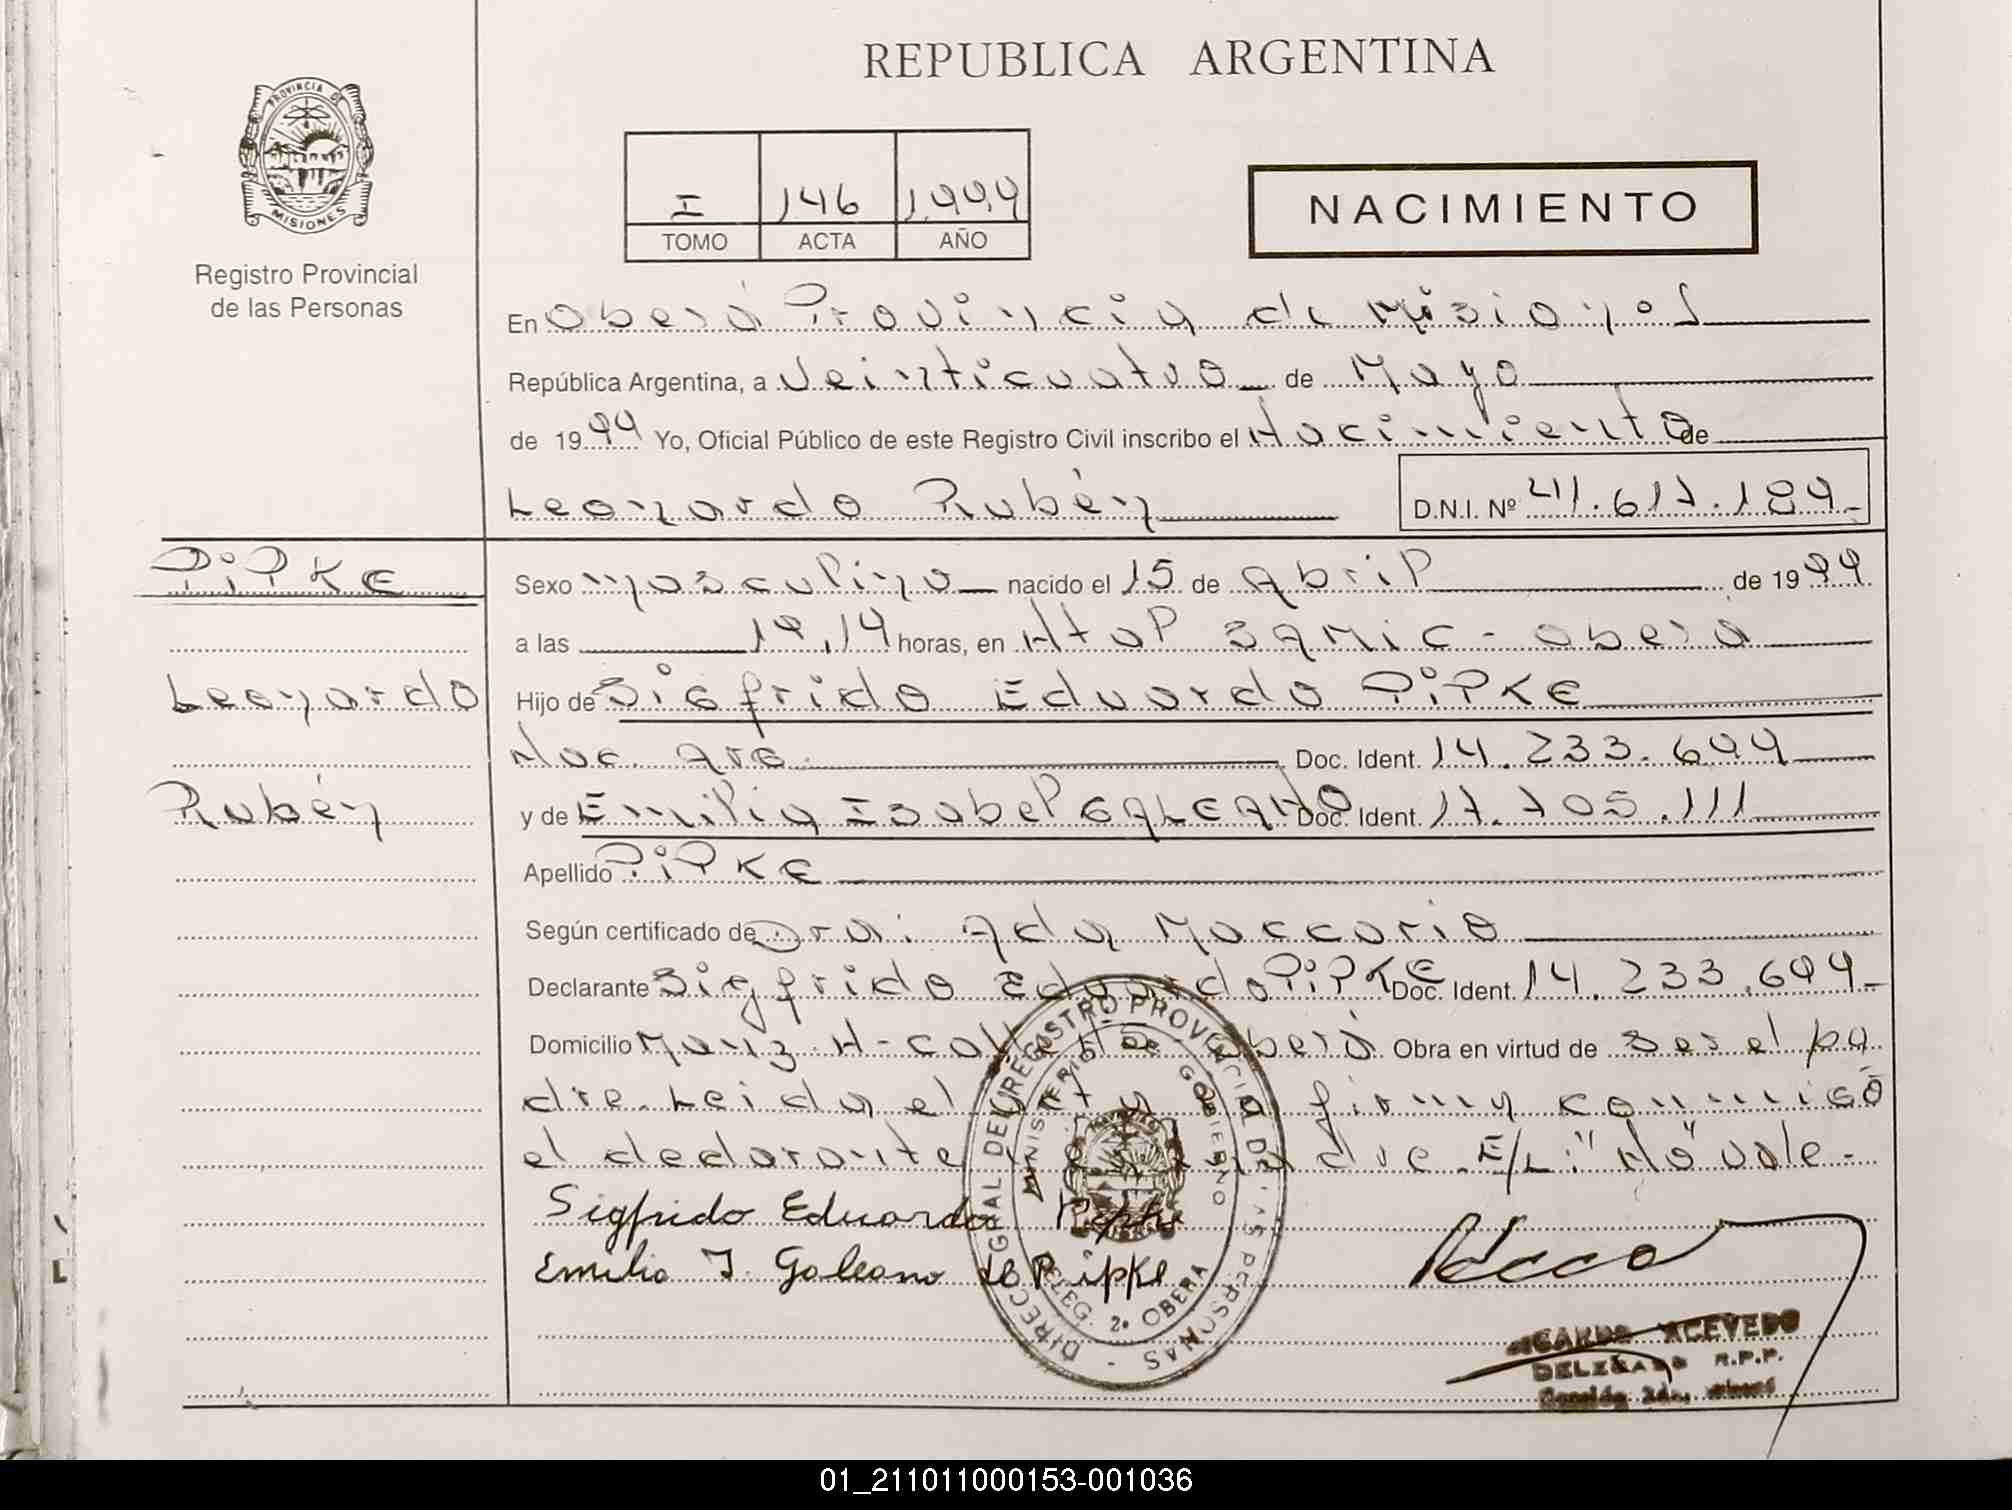 REPUBLICA ARGENTINA
PROVINCIA DE
MISIONES
Registro Provincial
de las Personas
I 146 1.999
TOMO ACTA AÑO
NACIMIENTO
En Oberá Provincia de Misiones
República Argentina, a Veinticuatro de Mayo
de 1999 Yo, Oficial Público de este Registro Civil inscribo el Nacimiento de
Leonardo Rubén D.N.I. Nº 41.617.189-
PiPKE
Sexo masculino nacido el 15 de Abril de 1999
a las 19,14 horas, en Htal SAMIC - Oberá
Leonardo
Hijo de Sigfrido Eduardo PiPKE
Nac. Arg. Doc. Ident. 14.233.699
Rubén
y de Emilia Isabel GALEANO Doc. Ident. 17.705.111
Apellido PiPKE
Según certificado de Dra: Ada Maccario
Declarante Sigfrido Eduardo PiPKE Doc. Ident. 14.233.699-
Domicilio Manz. H- Oberá Obra en virtud de ser el pa
dre. Leida el firma conmigo
el declarante dre. E/L: "No" vale.-
Sigfrido Eduardo Pipke
Emilia I. Galeano de Pipke
DIREC. GRAL DEL REGISTRO PROVINCIAL DE LAS PERSONAS
MINISTERIO DE GOBIERNO
DELEG. 2ª OBERA
ACEVEDO
DELEGADO R.P.P.
01_211011000153-001036